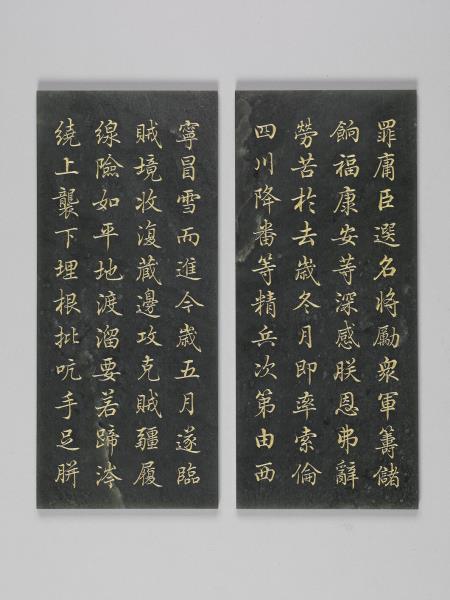 罪庸臣選名將勵衆軍籌儲
餉福康安等深感朕恩弗辭
勞苦於去歲冬月即率索倫
四川降番等精兵次第由西
寧冒雪而進今歲五月遂臨
賊境收復藏邊攻克賊疆履
線險如平地渡溜要若蹄涔
繞上襲下埋根批吭手足胼